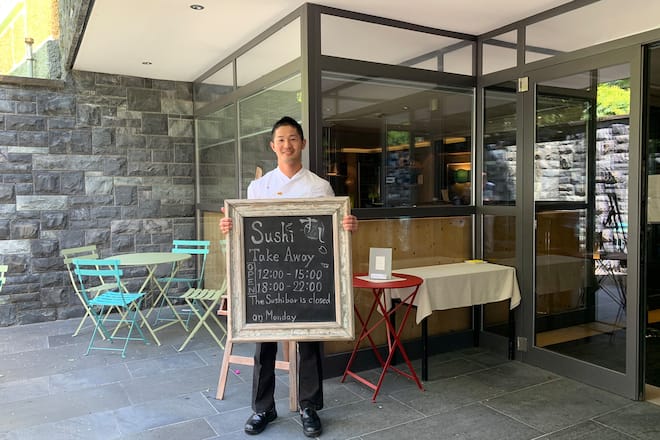 Sushi すし
Take Away
OPEN
12:00 - 15:00
18:00 - 22:00
The Sushibar is closed
on Monday